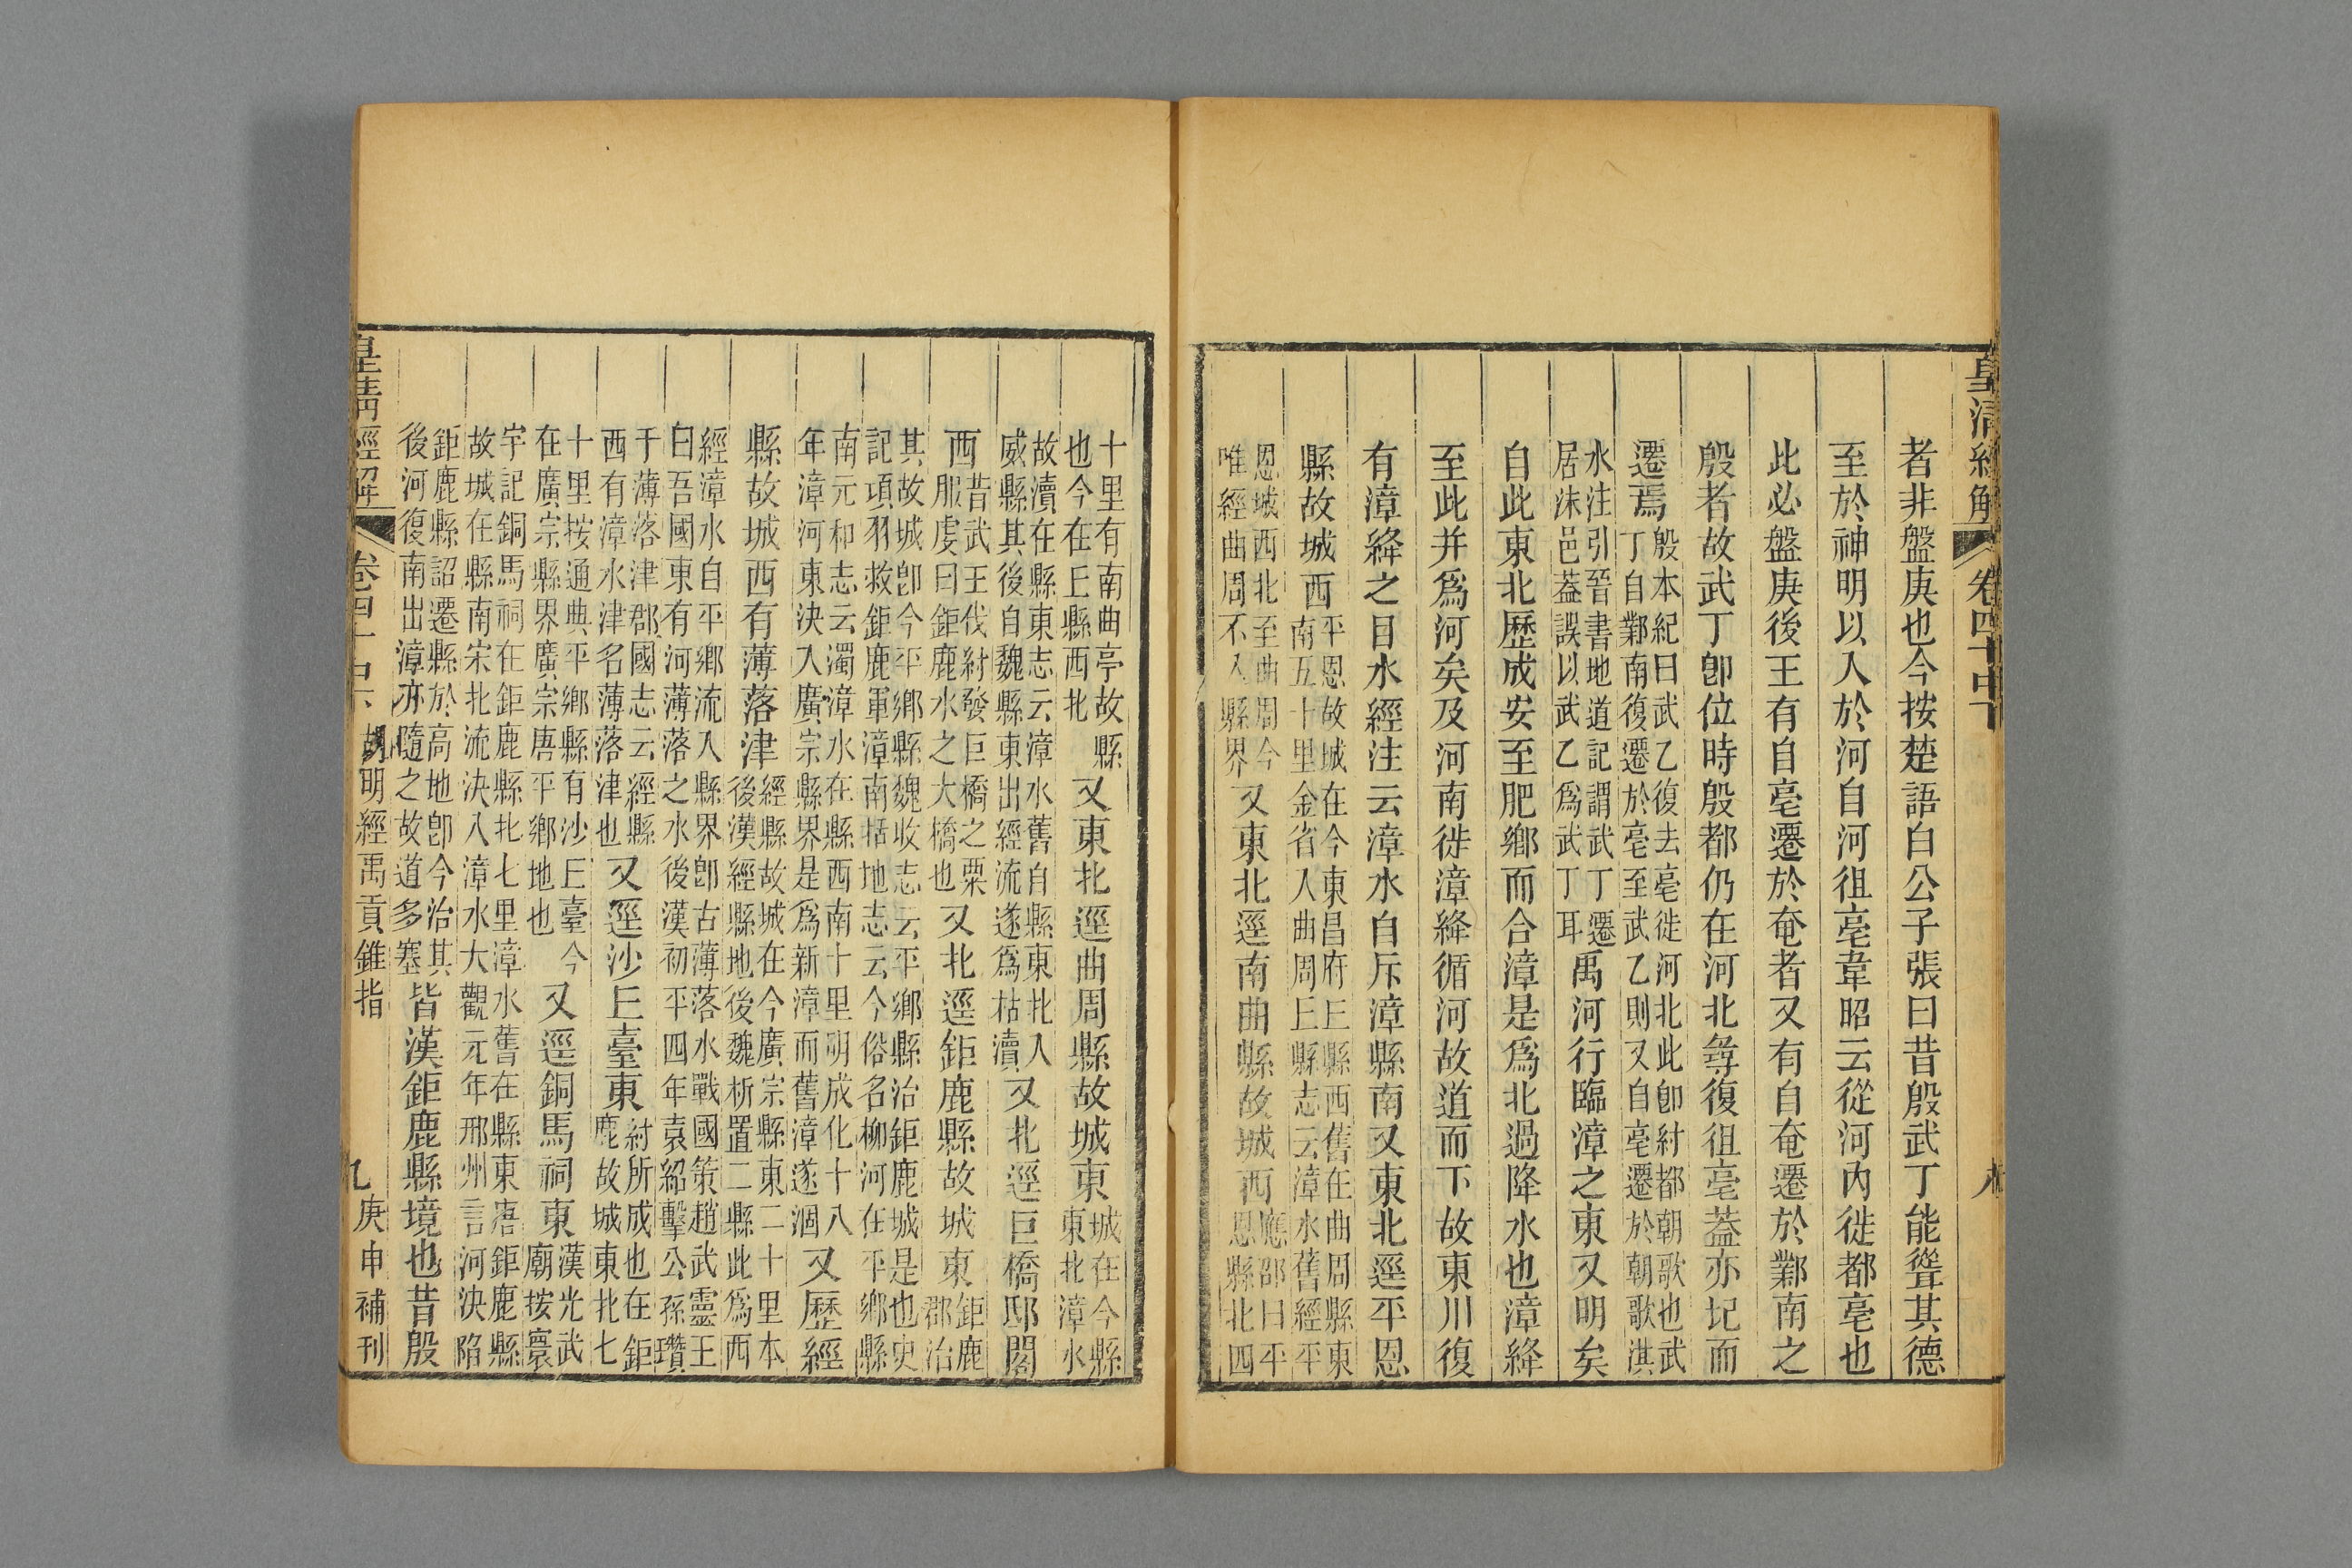 皇清經解 卷四十中下
者非盤庚也今按楚語白公子張曰昔殷武丁能聳其德
至於神明以入於河自河徂亳韋昭云從河內徙都亳也
此必盤庚後王有自亳遷於奄者又有自奄遷於鄴南之
殷者故武丁卽位時殷都仍在河北㝷復徂亳蓋亦圮而
遷焉殷本紀曰武乙復去亳徙河北此卽紂都朝歌也武
丁自鄴南復遷於亳至武乙則又自亳遷於朝歌淇
水注引晉書地道記謂武丁遷
居沬邑蓋誤以武乙爲武丁耳禹河行臨漳之東又明矣
自此東北歷成安至肥鄉而合漳是爲北過降水也漳絳
至此并爲河矣及河南徙漳絳循河故道而下故東川復
有漳絳之目水經注云漳水自斥漳縣南又東北逕平恩
縣故城西平恩故城在今東昌府丘縣西舊在曲周縣東
南五十里金省入曲周丘縣志云漳水舊經平
恩城西北至曲周今
唯經曲周不入縣界又東北逕南曲縣故城西應邵曰平
恩縣北四
十里有南曲亭故縣
也今在丘縣西北又東北逕曲周縣故城東城在今縣
東北漳水
故瀆在縣東志云漳水舊自縣東北入
威縣其後自魏縣東出經流遂爲枯瀆又北逕巨橋邸閣
西昔武王伐紂發巨橋之粟
服虔曰鉅鹿水之大橋也又北逕鉅鹿縣故城東鉅鹿
郡治
其故城卽今平鄉縣魏收志云平鄉縣治鉅鹿城是也史
記項羽救鉅鹿軍漳南括地志云今俗名柳河在平鄉縣
南元和志云濁漳水在縣西南十里明成化十八
年漳河東決入廣宗縣界是爲新漳而舊漳遂涸又歷經
縣故城西有薄落津經縣故城在今廣宗縣東二十里本
後漢經縣地後魏析置二縣此爲西
經漳水自平鄉流入縣界卽古薄落水戰國策趙武靈王
曰吾國東有河薄落之水後漢初平四年袁紹擊公孫瓚
于薄落津郡國志云經縣
西有漳水津名薄落津也又逕沙丘臺東紂所成也在鉅
鹿故城東北七
十里按通典平鄉縣有沙丘臺今
在廣宗縣界廣宗唐平鄉地也又逕銅馬祠東漢光武
廟按寰
宇記銅馬祠在鉅鹿縣北七里漳水舊在縣東唐鉅鹿縣
故城在縣南宋北流決入漳水大觀元年邢州言河決陷
鉅鹿縣詔遷縣於高地卽今治其
後河復南出漳亦隨之故道多塞皆漢鉅鹿縣境也昔殷
皇清經解 卷四十中下 胡明經禹貢錐指 九 庚申補刊